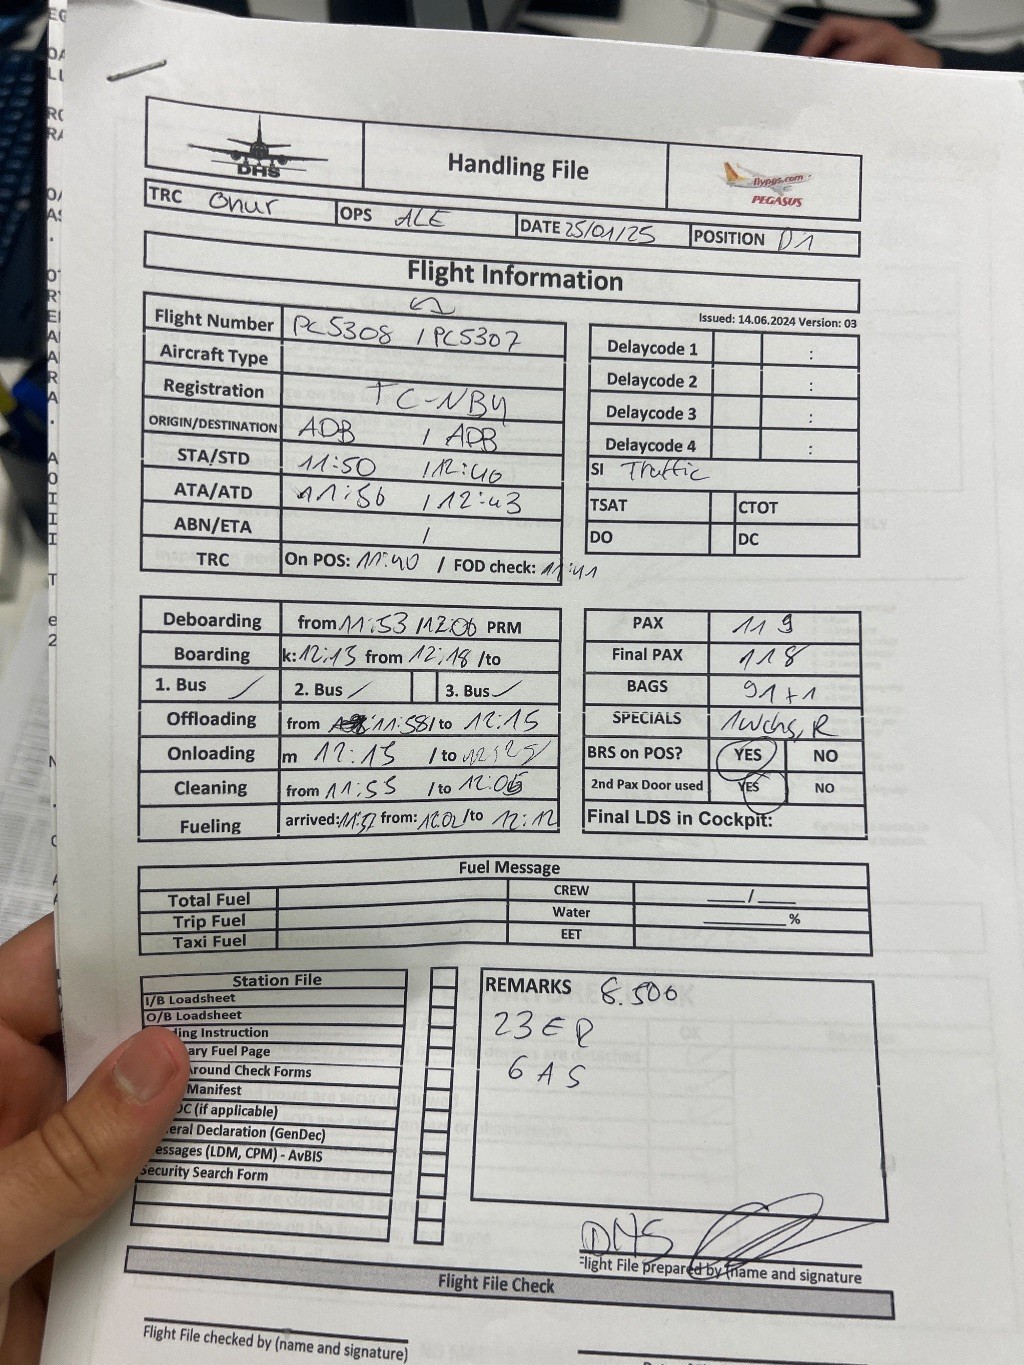 DHS
Handling File
flypgs.com
PEGASUS
TRC Onur OPS ALE DATE 25/01/25 POSITION D1
Flight Information
Issued: 14.06.2024 Version: 03
Flight Number PC5308 / PC5307
Aircraft Type
Registration TC-NBY
ORIGIN/DESTINATION ADB / ADB
STA/STD 11:50 / 12:40
ATA/ATD 11:50 / 12:43
ABN/ETA /
TRC On POS: 11:40 / FOD check: 11:41
Delaycode 1 :
Delaycode 2 :
Delaycode 3 :
Delaycode 4 :
SI Traffic
TSAT CTOT
DO DC
Deboarding from 11:53 / 12:06 PRM
Boarding k: 12:13 from 12:18 /to
1. Bus / 2. Bus / 3. Bus /
Offloading from 11:58 / to 12:15
Onloading m 12:15 / to
Cleaning from 11:55 / to 12:06
Fueling arrived: 11:57 from: 12:02 /to 12:12
PAX 119
Final PAX 118
BAGS 91+1
SPECIALS 1wchs, R
BRS on POS? YES NO
2nd Pax Door used YES NO
Final LDS in Cockpit:
Fuel Message
Total Fuel CREW ____/____
Trip Fuel Water ________%
Taxi Fuel EET
Station File
I/B Loadsheet
O/B Loadsheet
ding Instruction
ary Fuel Page
round Check Forms
Manifest
OC (if applicable)
eral Declaration (GenDec)
essages (LDM, CPM) - AvBIS
Security Search Form
REMARKS 8.500
23 ER
6 AS
DHS
Flight File prepared by (name and signature
Flight File Check
Flight File checked by (name and signature)